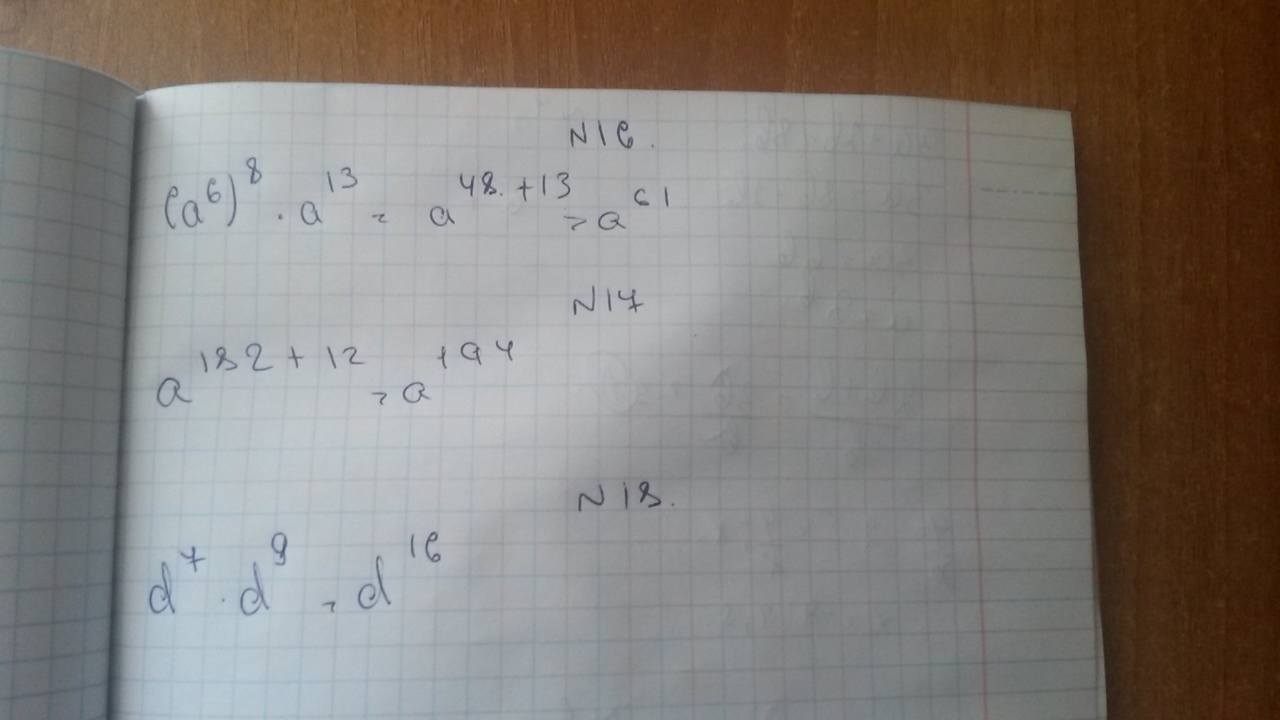 N16.
(a⁶)⁸ · a¹³ = a⁴⁸·⁺¹³ = a⁶¹
N17
a¹⁸²⁺¹² = a¹⁹⁴
N18.
d⁷ · d⁹ = d¹⁶